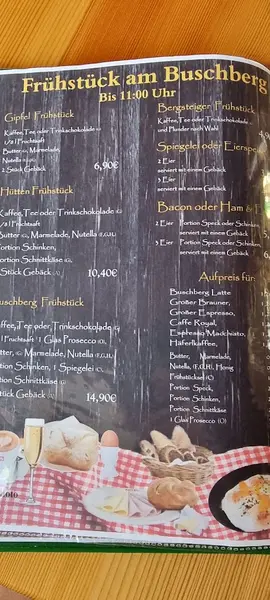 Frühstück am Buschberg
Bis 11:00 Uhr
Gipfel Frühstück
Kaffee, Tee oder Trinkschokolade (G)
1/8 l Fruchtsaft
Butter (G), Marmelade,
Nutella
2 Stück Gebäck
6,90€
Hütten Frühstück
Kaffee, Tee oder Trinkschokolade (G)
1/8 l Fruchtsaft
Butter (G), Marmelade, Nutella (E,G,H,)
Portion Schinken,
Portion Schnittkäse (G)
Stück Gebäck (A)
10,40€
Buschberg Frühstück
Kaffee, Tee oder, Trinkschokolade (G)
Fruchtsaft 1 Glas Prosecco (O)
Butter, (G) Marmelade, Nutella (E,G,H,)
Portion Schinken, 1 Spiegelei (C)
Portion Schnittkäse (G)
Stück Gebäck (A)
14,90€
Bergsteiger Frühstück
Kaffee, Tee oder Trinkschokolade
und Plunder nach Wahl
Spiegelei oder Eierspeis
2 Eier
serviert mit einem Gebäck
3 Eier
serviert mit einem Gebäck
Bacon oder Ham &
2 Eier Portion Speck oder Schinken,
serviert mit einem Gebäck
3 Eier Portion Speck oder Schinken,
serviert mit einem Gebäck
Aufpreis für:
Buschberg Latte
Großer Brauner,
Großer Espresso,
Caffe Royal,
Espresso Macchiato,
Häferlkaffee,
Butter, Marmelade,
Nutella, (E,G,H), Honig
Frühstücksei (C)
Portion Speck,
Portion Schinken,
Portion Schnittkäse
1 Glas Prosecco (O)